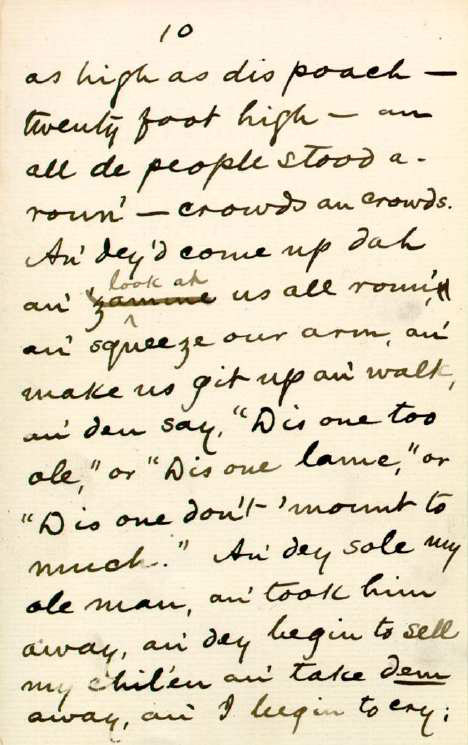 10
as high as dis poach —
twenty foot high — an
all de people stood a-
roun' — crowds an crowds.
An' dey'd come up dah
look at
an' 'zamine us all roun',
an' squeeze our arm, an'
make us git up an' walk,
an' den say, "Dis one too
ole," or "Dis one lame," or
"Dis one don't 'mount to
much." An' dey sole my
ole man, an' took him
away, an' dey begin to sell
my chil'en an' take dem
away, an' I begin to cry;